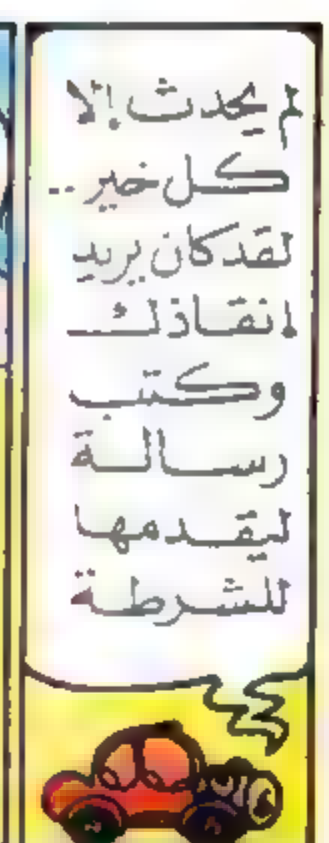 لم يحدث إلا
كل خير ..
لقد كان يريد
إنقاذك
وكتب
رسالة
ليقدمها
للشرطة